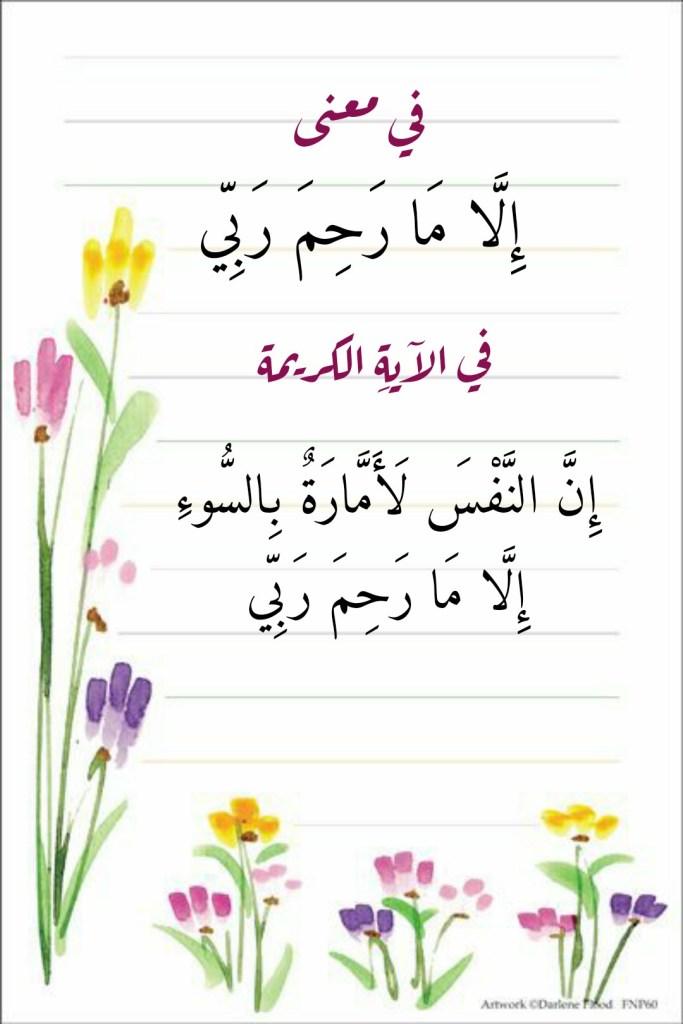 في معنى
إِلَّا مَا رَحِمَ رَبِّي
في الآيةِ الكريمة
إِنَّ النَّفْسَ لَأَمَّارَةٌ بِالسُّوءِ
إِلَّا مَا رَحِمَ رَبِّي
Artwork ©Darlene Flood FNP60